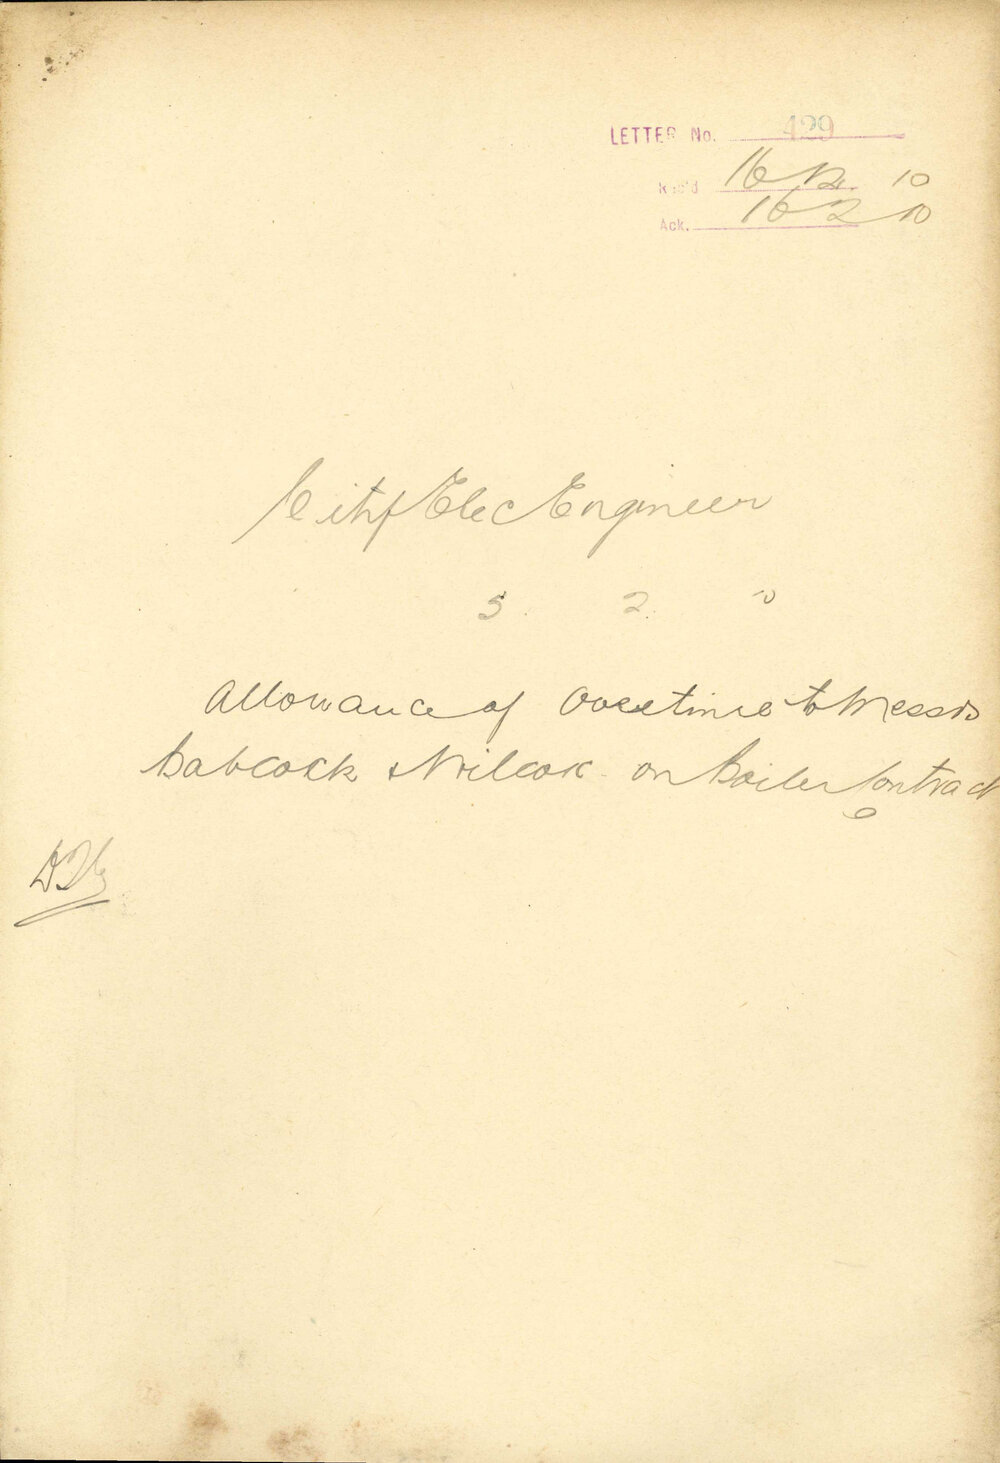 LETTER No. 429
Rec'd 16 2 10
Ack. 16 2 10
City Elec Engineer
5. 2. 10
Allowance of Overtime to Messrs
Babcock & Wilcox on Boiler Contract